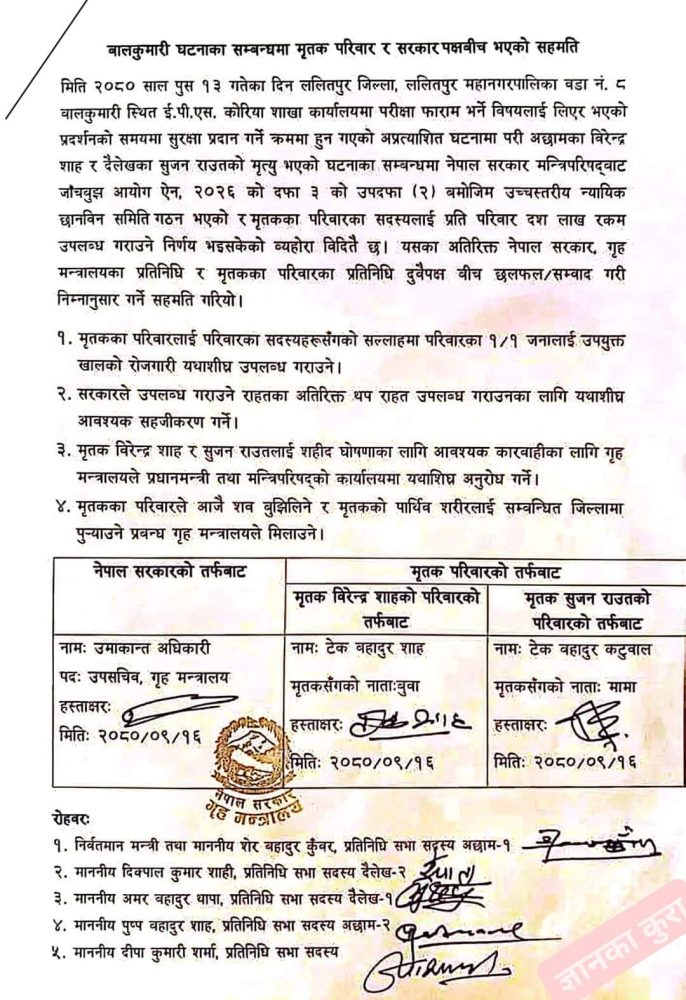 बालकुमारी घटनाका सम्बन्धमा मृतक परिवार र सरकार पक्षबीच भएको सहमति
मिति २०८० साल पुस १३ गतेका दिन ललितपुर जिल्ला, ललितपुर महानगरपालिका वडा नं. ८
बालकुमारी स्थित ई.पी.एस. कोरिया शाखा कार्यालयमा परीक्षा फाराम भर्ने विषयलाई लिएर भएको
प्रदर्शनको समयमा सुरक्षा प्रदान गर्ने क्रममा हुन गएको अप्रत्याशित घटनामा परी अछामका विरेन्द्र
शाह र दैलेखका सुजन राउतको मृत्यु भएको घटनाका सम्बन्धमा नेपाल सरकार मन्त्रिपरिषद्बाट
जाँचबुझ आयोग ऐन, २०२६ को दफा ३ को उपदफा (२) बमोजिम उच्चस्तरीय न्यायिक
छानविन समिति गठन भएको र मृतकका परिवारका सदस्यलाई प्रति परिवार दश लाख रकम
उपलब्ध गराउने निर्णय भइसकेको व्यहोरा विदितै छ। यसका अतिरिक्त नेपाल सरकार, गृह
मन्त्रालयका प्रतिनिधि र मृतकका परिवारका प्रतिनिधि दुवैपक्ष वीच छलफल/सम्वाद गरी
निम्नानुसार गर्ने सहमति गरियो।
१. मृतकका परिवारलाई परिवारका सदस्यहरूसँगको सल्लाहमा परिवारका १/१ जनालाई उपयुक्त
खालको रोजगारी यथाशीघ्र उपलब्ध गराउने।
२. सरकारले उपलब्ध गराउने राहतका अतिरिक्त थप राहत उपलब्ध गराउनका लागि यथाशीघ्र
आवश्यक सहजीकरण गर्ने।
३. मृतक विरेन्द्र शाह र सुजन राउतलाई शहीद घोषणाका लागि आवश्यक कारवाहीका लागि गृह
मन्त्रालयले प्रधानमन्त्री तथा मन्त्रिपरिषद्को कार्यालयमा यथाशिघ्र अनुरोध गर्ने।
४. मृतकका परिवारले आजै शव बुझिलिने र मृतकको पार्थिव शरीरलाई सम्वन्धित जिल्लामा
पुऱ्याउने प्रबन्ध गृह मन्त्रालयले मिलाउने।
नेपाल सरकारको तर्फबाट
मृतक परिवारको तर्फबाट
मृतक विरेन्द्र शाहको परिवारको
तर्फबाट
मृतक सुजन राउतको
परिवारको तर्फबाट
नामः उमाकान्त अधिकारी
पदः उपसचिव, गृह मन्त्रालय
हस्ताक्षरः
मितिः २०८०/०९/१६
नामः टेक वहादुर शाह
मृतकसँगको नाताःबुवा
हस्ताक्षरः
मितिः २०८०/०९/१६
नामः टेक वहादुर कटुवाल
मृतकसँगको नाताः मामा
हस्ताक्षरः
मितिः २०८०/०९/१६
नेपाल सरकार
गृह मन्त्रालय
रोहवरः
१. निर्वतमान मन्त्री तथा माननीय शेर बहादुर कुँवर, प्रतिनिधि सभा सदस्य अछाम-१
२. माननीय दिक्पाल कुमार शाही, प्रतिनिधि सभा सदस्य दैलेख-२
३. माननीय अमर वहादुर थापा, प्रतिनिधि सभा सदस्य दैलेख-१
४. माननीय पुष्प वहादुर शाह, प्रतिनिधि सभा सदस्य अछाम-२
५. माननीय दीपा कुमारी शर्मा, प्रतिनिधि सभा सदस्य
ज्ञानका कुरा